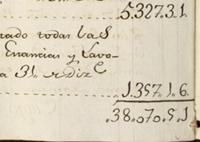 5.327.31.
rado todas las
Enancias y Lavo-
a 31 de Dize
1.357.1.6.
.38.070.5.1